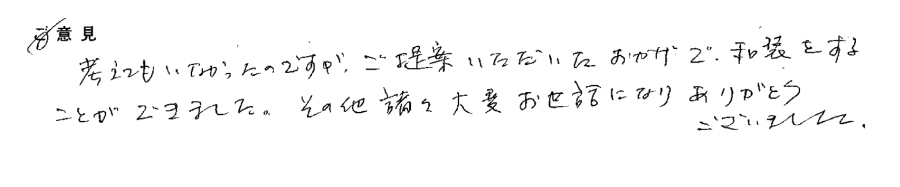 ご意見
考えてもいなかったのですが、ご提案いただいたおかげで、和装をする
ことができました。その他諸々大変お世話になりありがとう
ございました。